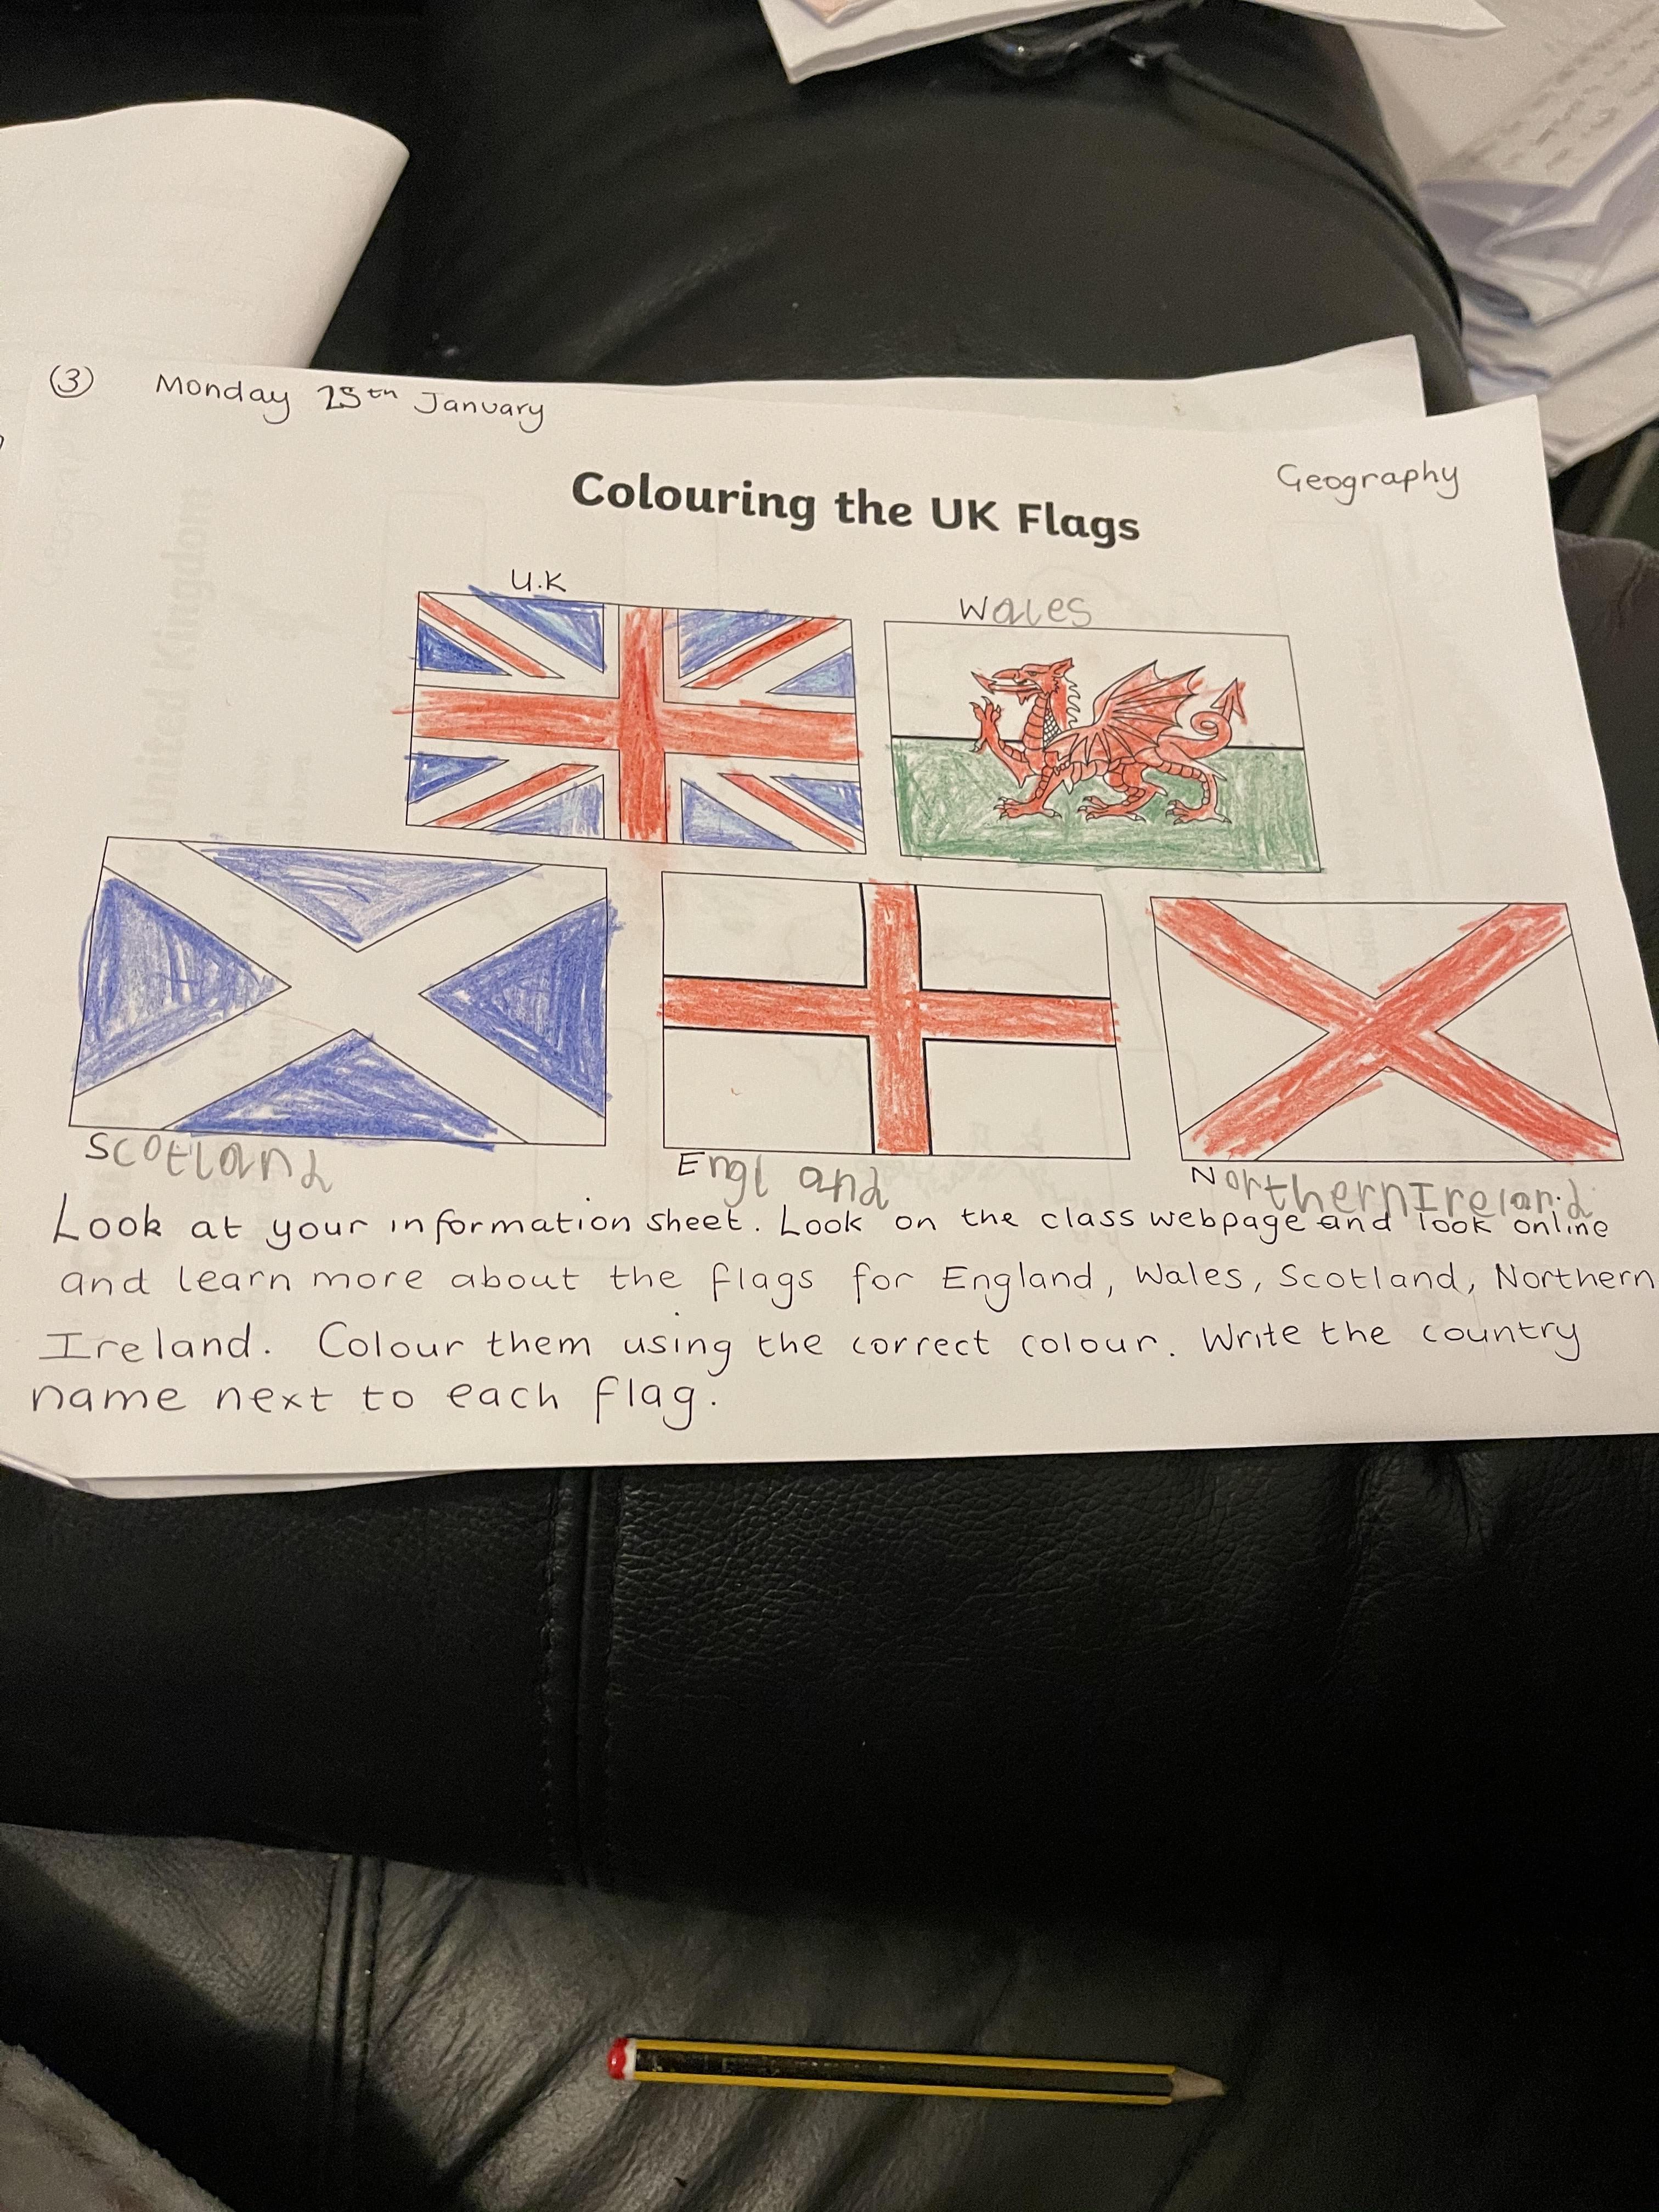 ③ Monday 25th January
Geography
Colouring the UK Flags
U.K
Wales
Scotland
England
Northern Ireland
Look at your information sheet. Look on the class webpage and look online
and learn more about the flags for England, Wales, Scotland, Northern
Ireland. Colour them using the correct colour. Write the country
name next to each flag.
United Kingdom